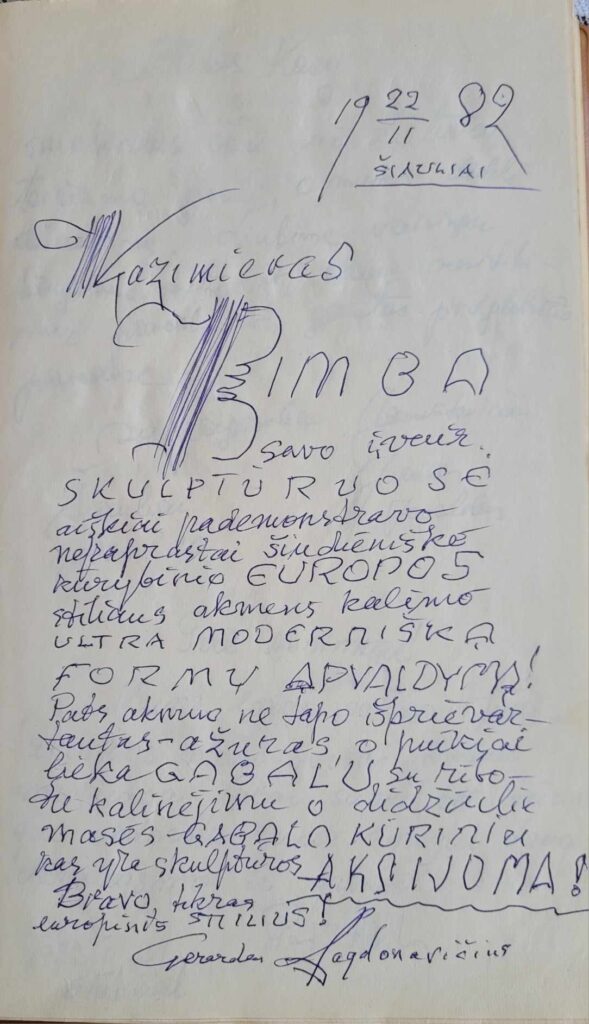 19 22/11 82
ŠIAULIAI
Kazimieras
BIMBA
savo įvair.
SKULPTŪRUOSE
aiškiai pademonstravo
nepaprastai šiandieniškė
kūrybinio EUROPOS
stiliaus akmens kalimo
ULTRA MODERNIŠKĄ
FORMŲ APVALDYMĄ!
Pats akmuo ne tapo išprievar-
tautas-ažūras, o puikiai
lieka GABALU su ribo-
tu kalinėjimu o didžiulis
masės-GABALO KŪRINIU
kas yra skulptūros AKSIJOMA!
Bravo, tikras
europinis STILIUS!
Gerardas Bagdonavičius